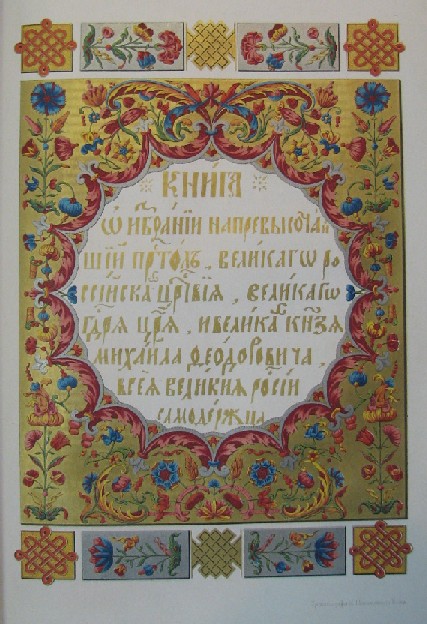 КНИ́ГА
Ѡ И҆ЗБРА́НЇИ НАПРЕВЫСОЧА́Й
ШЇЙ ПРⷭ҇ТО́ЛЪ, ВЕЛИ́КАГѠ РО
ССІ́ЙСКА ЦРⷭ҇ТВІЯ, ВЕЛИ́КАГѠ
ГДⷭ҇РЯ ЦР҃Я́, И ВЕЛИ́КАГѠ КНЗ҃Я
МИХАИ́ЛА ѲЕѠ́ДОРОВИЧА,
ВСЕЯ̀ ВЕЛИ́КИЯ РОСІ́И
САМОДЕ́РЖЦА